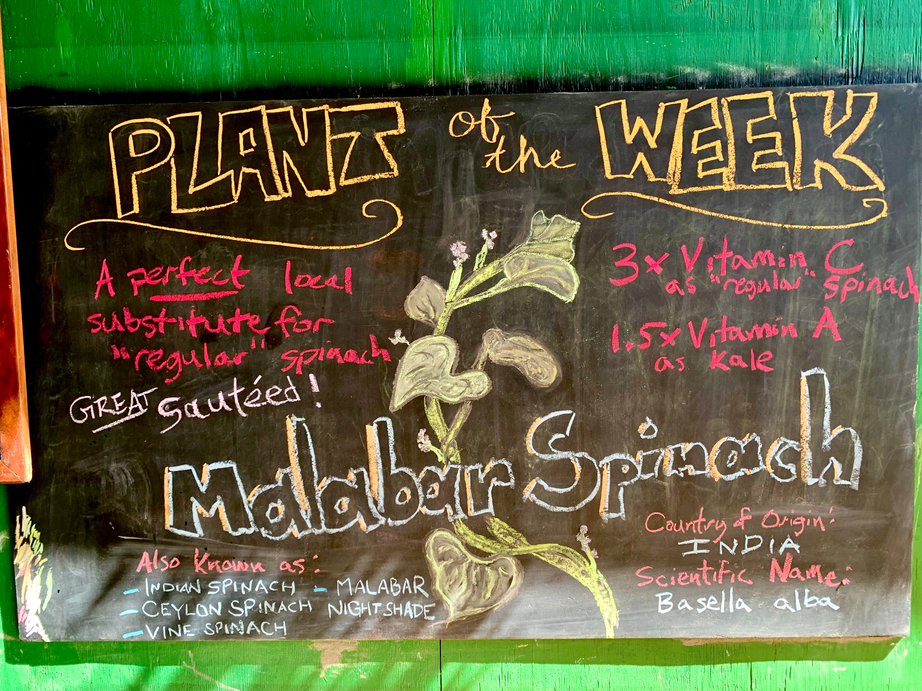 PLANT of the WEEK
A perfect local
substitute for
"regular" spinach
GREAT sautéed!
3x Vitamin C
as "regular" spinach
1.5x Vitamin A
as Kale
Malabar Spinach
Also Known as:
- INDIAN SPINACH
- CEYLON SPINACH
- VINE SPINACH
- MALABAR
NIGHTSHADE
Country of Origin:
INDIA
Scientific Name:
Basella alba